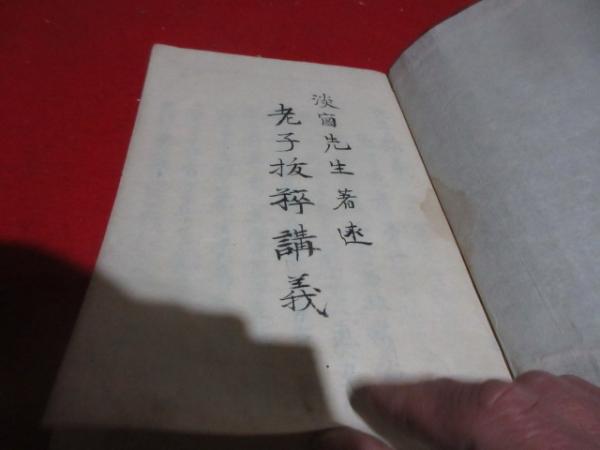 淡窗先生著述
老子抜粹講義